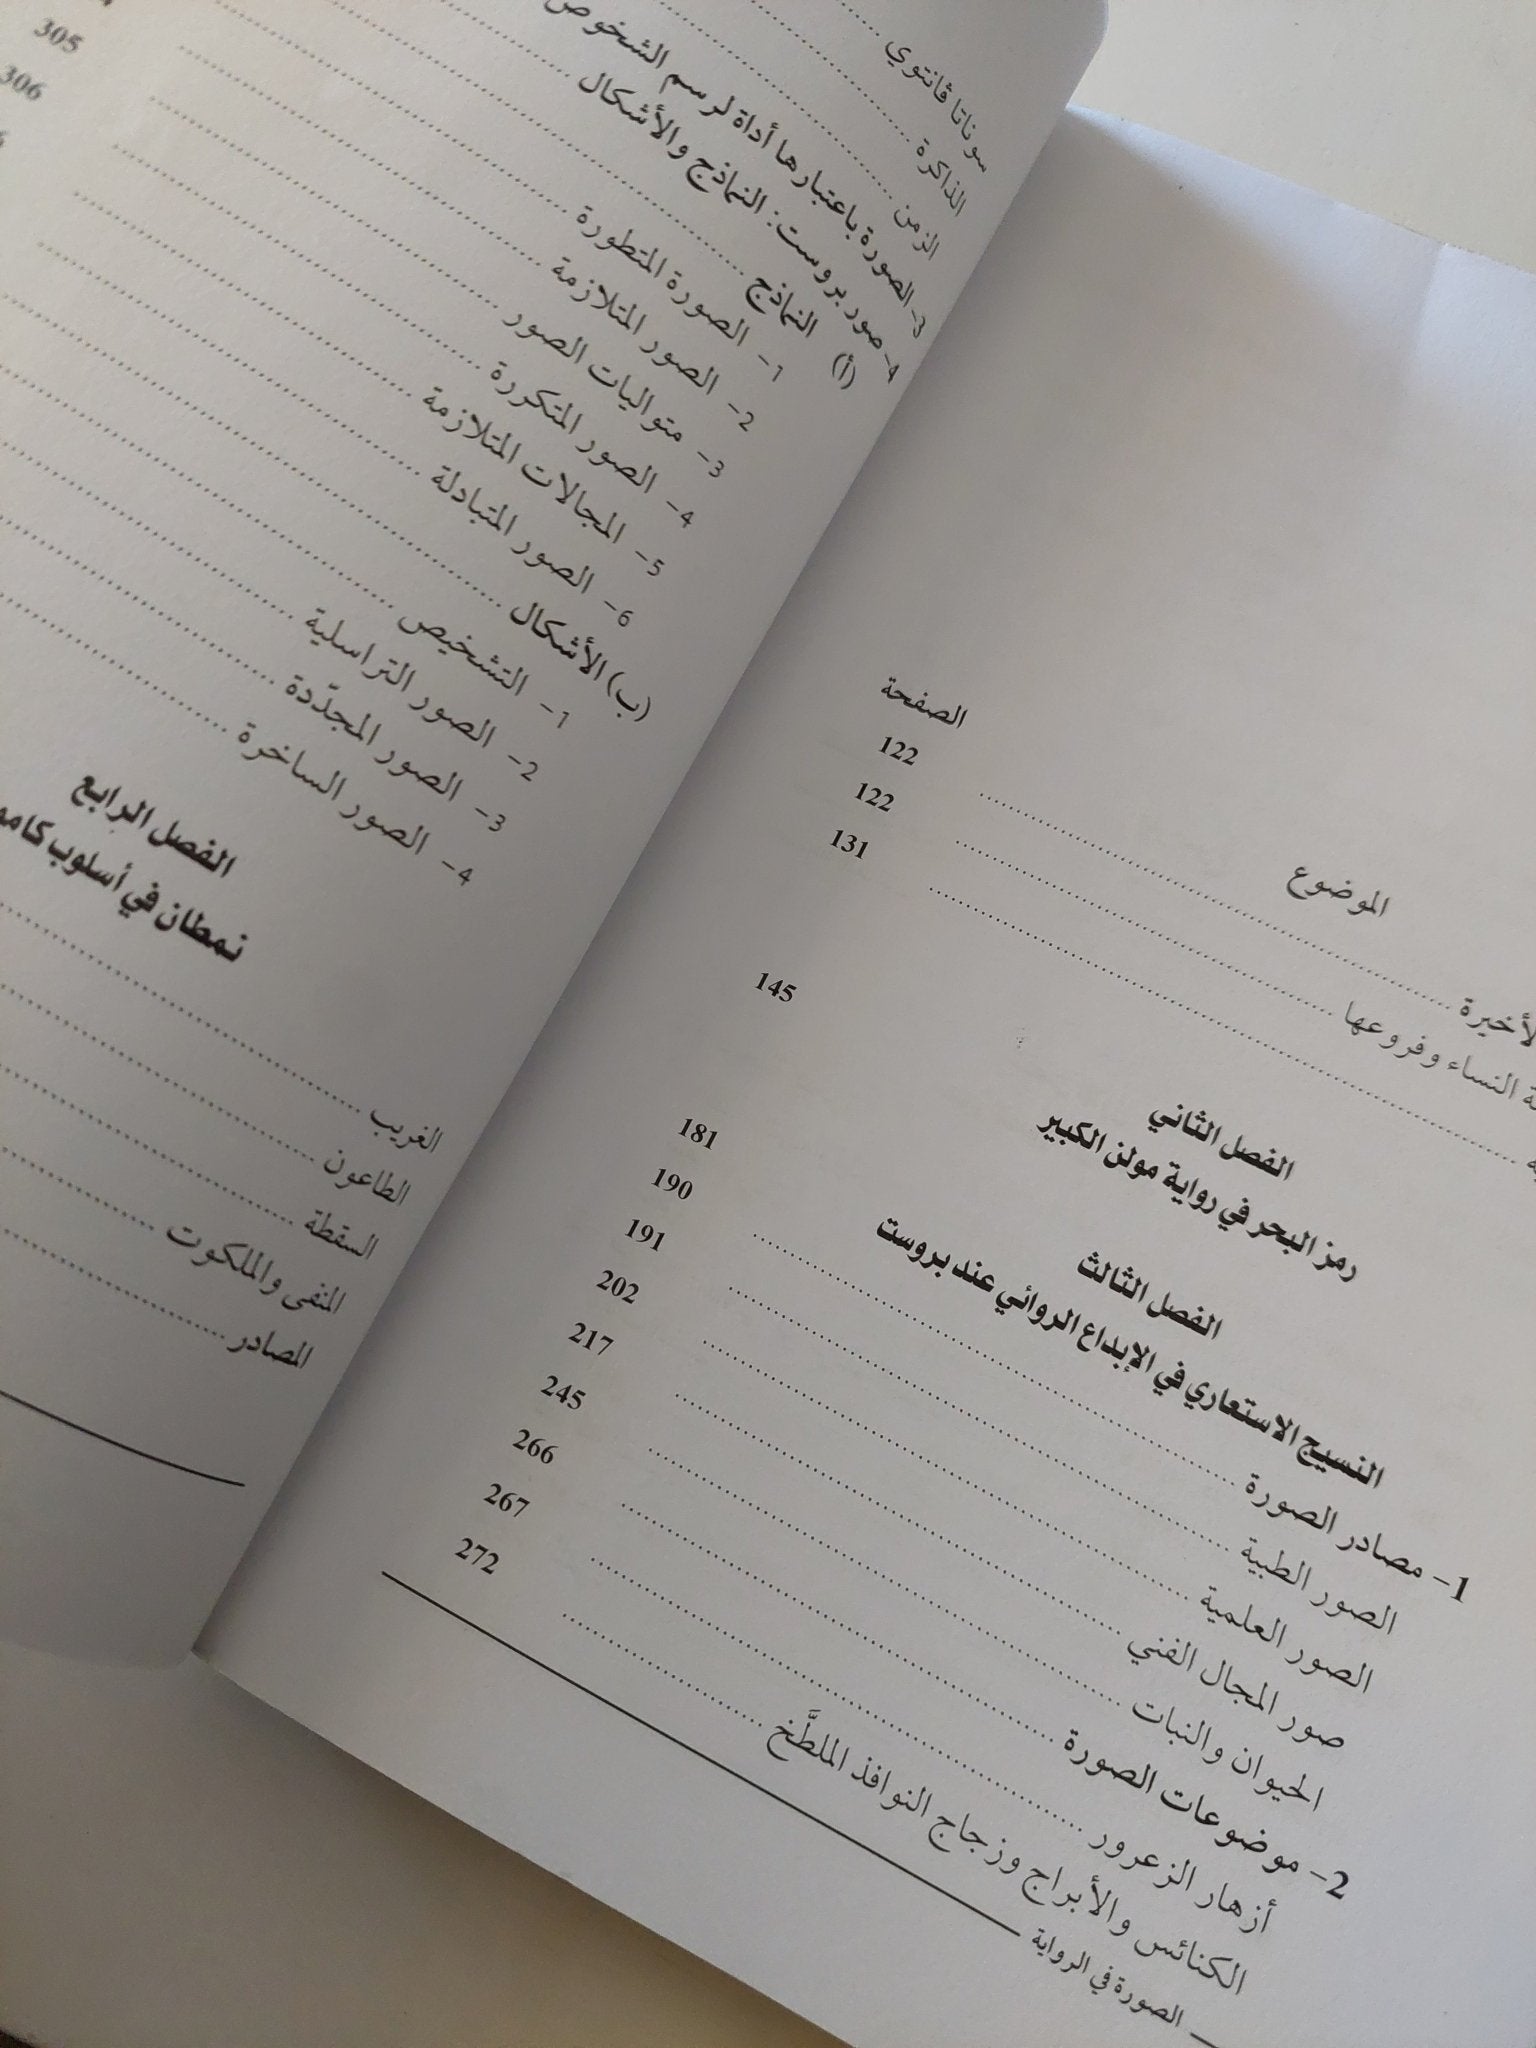 الموضوع الصفحة
الأخيرة 122
النساء وفروعها 122
131
الفصل الثاني
رمز البحر في رواية مولن الكبير 145
الفصل الثالث
النسيج الاستعاري في الإبداع الروائي عند بروست
1- مصادر الصورة 181
الصور الطبية 190
الصور العلمية 191
صور المجال الفني 202
الحيوان والنبات 217
2- موضوعات الصورة 245
أزهار الزعرور 266
الكنائس والأبراج وزجاج النوافذ الملطَّخ 267
272
الصورة في الرواية
سوناتا ڤانتوي
الذاكرة
الزمن
3- الصورة باعتبارها أداة لرسم الشخوص
4- صور بروست: النماذج والأشكال
(أ) النماذج
1- الصورة المتطورة
2- الصور المتلازمة
3- متواليات الصور
4- الصور المتكررة
5- المجالات المتلازمة
6- الصور المتبادلة
(ب) الأشكال
1- التشخيص
2- الصور التراسلية
3- الصور المجدّدة
4- الصور الساخرة
305
306
الفصل الرابع
نمطان في أسلوب
الغريب
الطاعون
السقطة
المنفى والملكوت
المصادر